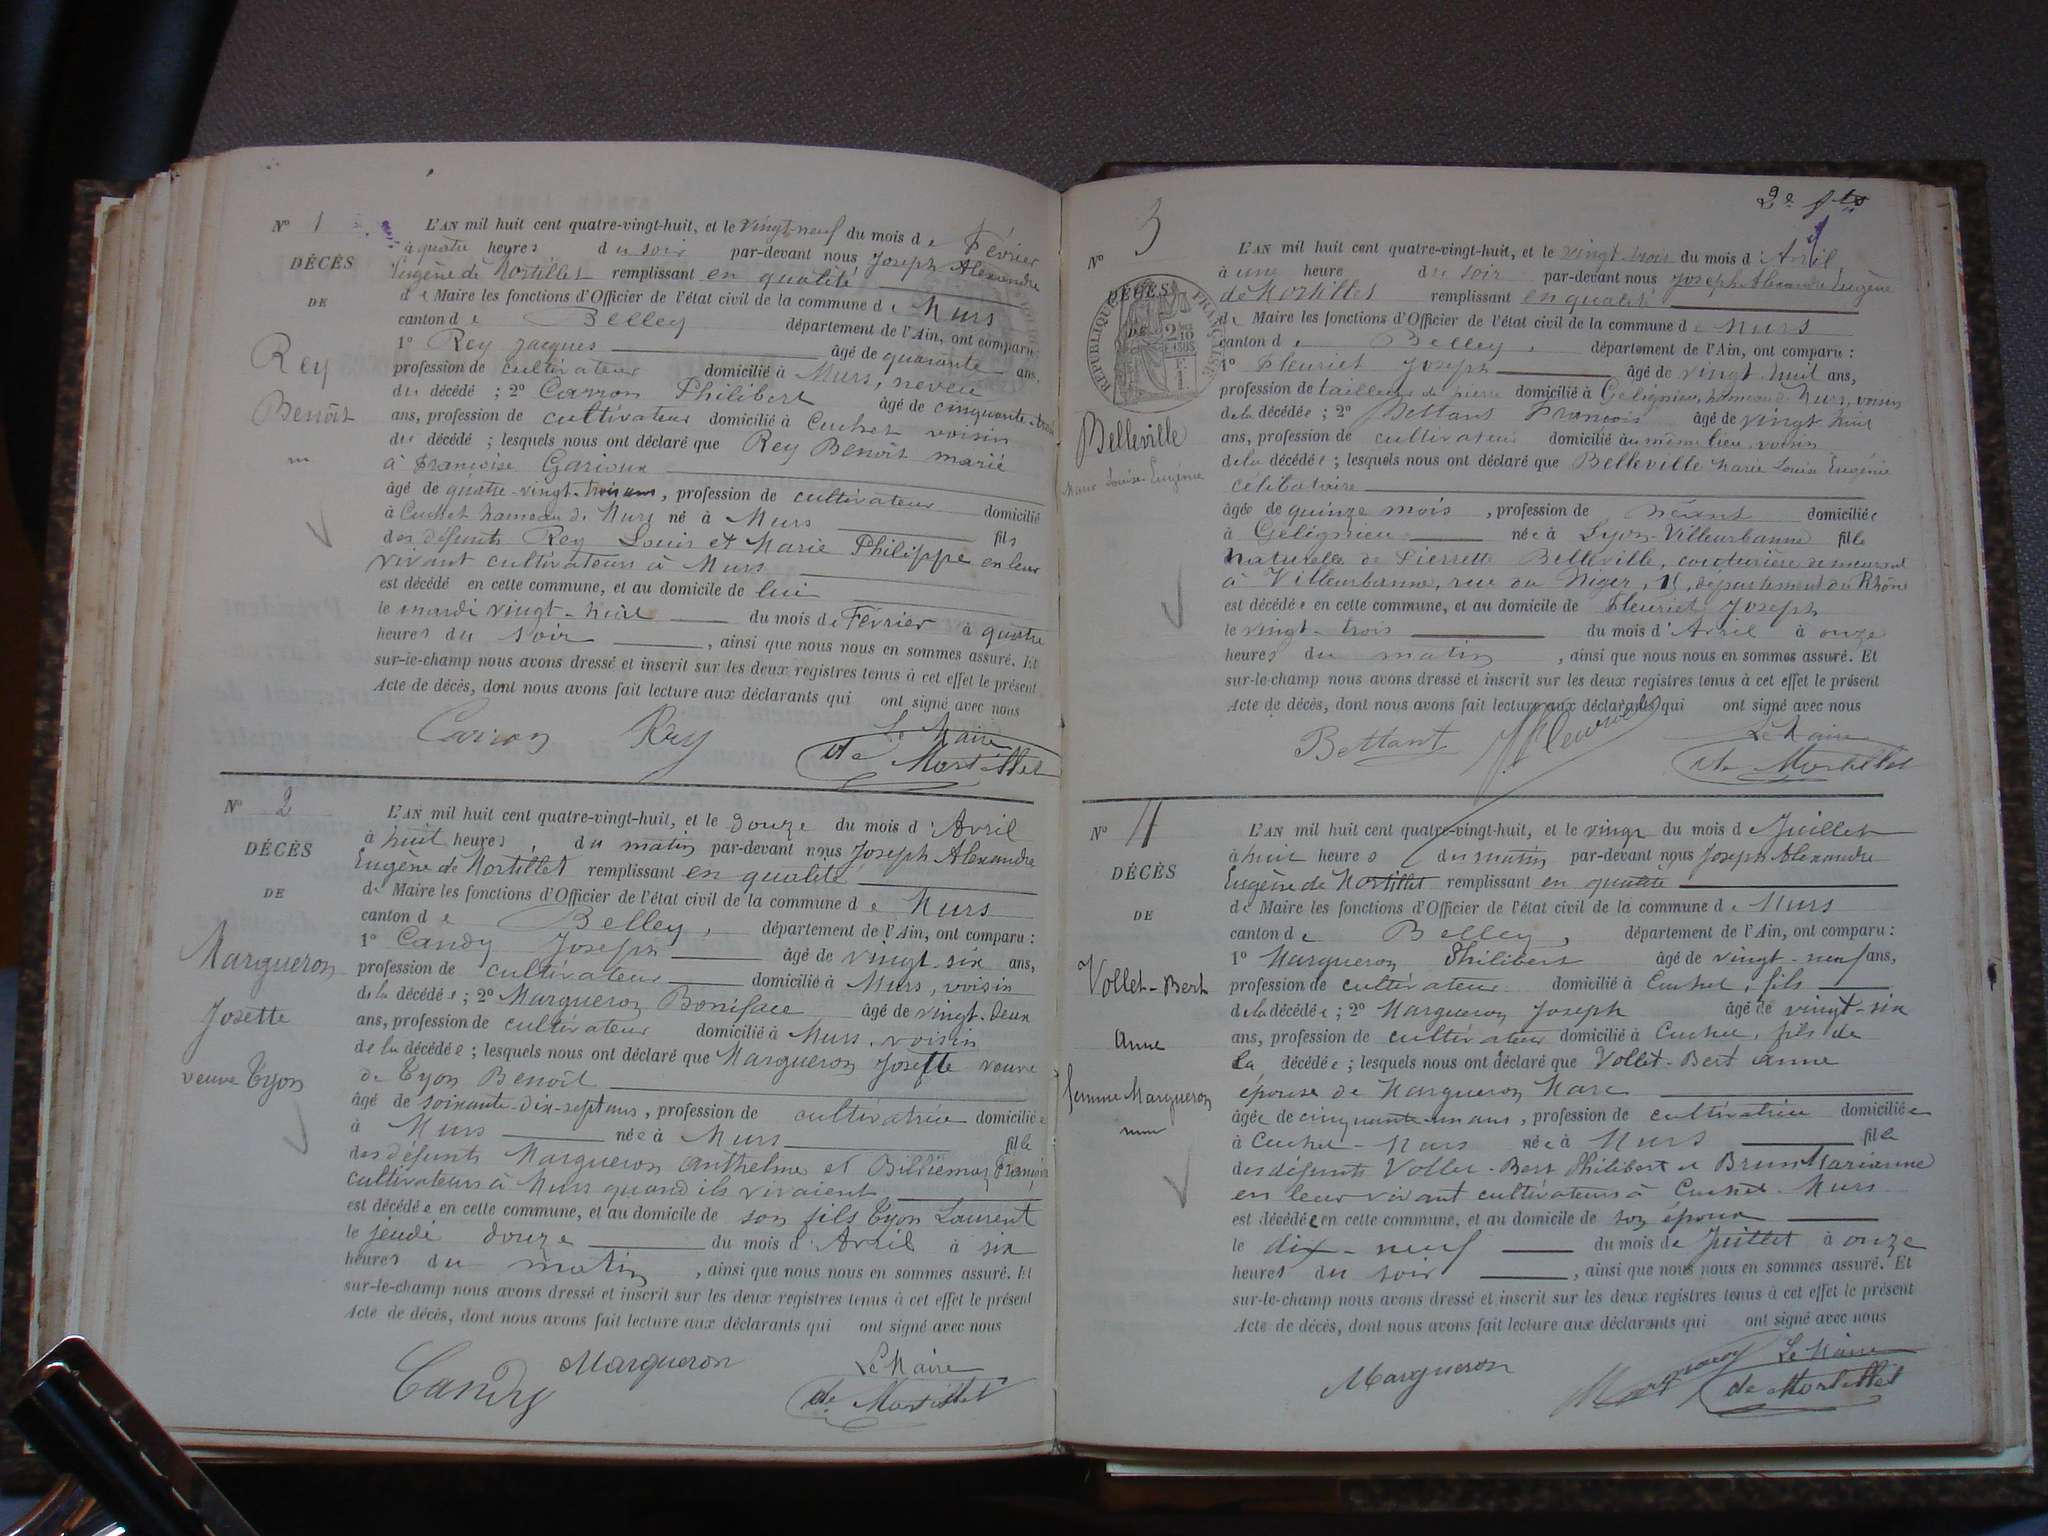 N° 1
DÉCÈS
DE
Rey
Benoît
L'AN mil huit cent quatre-vingt-huit, et le vingt-neuf du mois de Février
à quatre heures du soir par-devant nous Joseph Alexandre
Eugène de Mortillet remplissant en qualité
de Maire les fonctions d'Officier de l'état civil de la commune de Murs
canton de Belley département de l'Ain, ont comparu :
1° Rey Jacques âgé de quarante ans,
profession de cultivateur domicilié à Murs, neveu
du décédé ; 2° Carron Philibert âgé de cinquante-trois
ans, profession de cultivateur domicilié à Cuchet voisin
du décédé ; lesquels nous ont déclaré que Rey Benoît marié
à Françoise Garioux
âgé de quatre-vingt-trois ans, profession de cultivateur domicilié
à Cuchet hameau de Murs né à Murs fils
des défunts Rey Louis et Marie Philippe en leur
vivant cultivateurs à Murs
est décédé en cette commune, et au domicile de lui
le mardi vingt-huit du mois de Février à quatre
heures du soir , ainsi que nous nous en sommes assuré. Et
sur-le-champ nous avons dressé et inscrit sur les deux registres tenus à cet effet le présent
Acte de décès, dont nous avons fait lecture aux déclarants qui ont signé avec nous
Carron Rey Le Maire
de Mortillet
N° 2
DÉCÈS
DE
Margueron
Josette
veuve Tyon
L'AN mil huit cent quatre-vingt-huit, et le douze du mois d'Avril
à huit heures du matin par-devant nous Joseph Alexandre
Eugène de Mortillet remplissant en qualité
de Maire les fonctions d'Officier de l'état civil de la commune de Murs
canton de Belley, département de l'Ain, ont comparu :
1° Candy Joseph âgé de vingt-six ans,
profession de cultivateur domicilié à Murs, voisin
de la décédée ; 2° Margueron Boniface âgé de vingt-deux
ans, profession de cultivateur domicilié à Murs, voisin
de la décédée ; lesquels nous ont déclaré que Margueron Josette veuve
de Tyon Benoît
âgé de soixante-dix-sept ans, profession de cultivatrice domiciliée
à Murs née à Murs fille
des défunts Margueron Anthelme et Billiémaz
cultivateurs à Murs quand ils vivaient
est décédée en cette commune, et au domicile de son fils Tyon Laurent
le jeudi douze du mois d'Avril à six
heures du matin , ainsi que nous nous en sommes assuré. Et
sur-le-champ nous avons dressé et inscrit sur les deux registres tenus à cet effet le présent
Acte de décès, dont nous avons fait lecture aux déclarants qui ont signé avec nous
Candy Margueron Le Maire
de Mortillet
N° 3
DÉCÈS
DE
RÉPUBLIQUE FRANÇAISE
Belleville
Marie Louise Eugénie
L'AN mil huit cent quatre-vingt-huit, et le vingt-trois du mois d'Avril
à une heure du soir par-devant nous Joseph Alexandre Eugène
de Mortillet remplissant en qualité
de Maire les fonctions d'Officier de l'état civil de la commune de Murs
canton de Belley, département de l'Ain, ont comparu :
1° Fleuriet Joseph âgé de vingt-huit ans,
profession de tailleur de pierre domicilié à Gélignieu, hameau de Murs, voisin
de la décédée ; 2° Bettant François âgé de vingt huit
ans, profession de cultivateur domicilié au même lieu, voisin
de la décédée ; lesquels nous ont déclaré que Belleville Marie Louise Eugénie
célibataire
âgée de quinze mois , profession de néant domiciliée
à Gélignieu née à Lyon-Villeurbanne fille
naturelle de Pierrette Belleville, couturière demeurant
à Villeurbanne, rue du Niger, département du Rhône
est décédée en cette commune, et au domicile de Fleuriet Joseph
le vingt-trois du mois d'Avril à onze
heures du matin , ainsi que nous nous en sommes assuré. Et
sur-le-champ nous avons dressé et inscrit sur les deux registres tenus à cet effet le présent
Acte de décès, dont nous avons fait lecture aux déclarants qui ont signé avec nous
Bettant Le Maire
de Mortillet
N° 4
DÉCÈS
DE
Vollet-Bert
Anne
femme Margueron
L'AN mil huit cent quatre-vingt-huit, et le vingt du mois de Juillet
à huit heures du matin par-devant nous Joseph Alexandre
Eugène de Mortillet remplissant en qualité
de Maire les fonctions d'Officier de l'état civil de la commune de Murs
canton de Belley, département de l'Ain, ont comparu :
1° Margueron Philibert âgé de vingt-neuf ans,
profession de cultivateur domicilié à Cuchet, fils
de la décédée ; 2° Margueron Joseph âgé de vingt-six
ans, profession de cultivateur domicilié à Cuchet, fils de
la décédée ; lesquels nous ont déclaré que Vollet-Bert Anne
épouse de Margueron Marc
âgée de cinquante-un ans, profession de cultivatrice domiciliée
à Cuchet-Murs née à Murs fille
des défunts Vollet-Bert Philibert et Brun Marianne
en leur vivant cultivateurs à Cuchet-Murs
est décédée en cette commune, et au domicile de son époux
le dix-neuf du mois de Juillet à onze
heures du soir , ainsi que nous nous en sommes assuré. Et
sur-le-champ nous avons dressé et inscrit sur les deux registres tenus à cet effet le présent
Acte de décès, dont nous avons fait lecture aux déclarants qui ont signé avec nous
Margueron Margueron Le Maire
de Mortillet